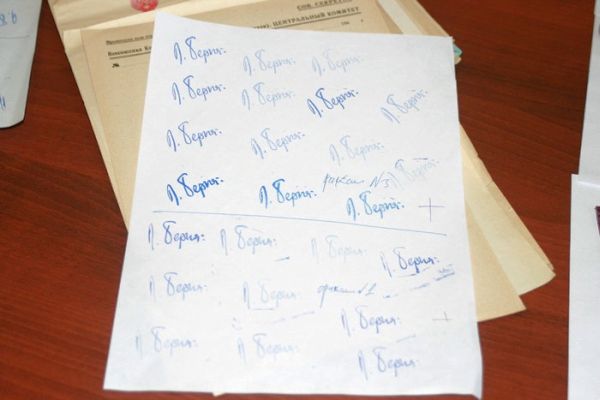 СОВ. СЕКРЕТНО
ЦЕНТРАЛЬНЫЙ КОМИТЕТ
№
Л. Берия. Л. Берия. Л. Берия.
Л. Берия. Л. Берия. Л. Берия. Л. Берия.
Л. Берия. Л. Берия. Л. Берия. Л. Берия.
Л. Берия. Л. Берия. №3 Л. Берия. +
Л. Берия: Л. Берия: Л. Берия: Л. Берия:
Л. Берия: Л. Берия:
Л. Берия: Л. Берия: Л. Берия: +
Л. Берия: